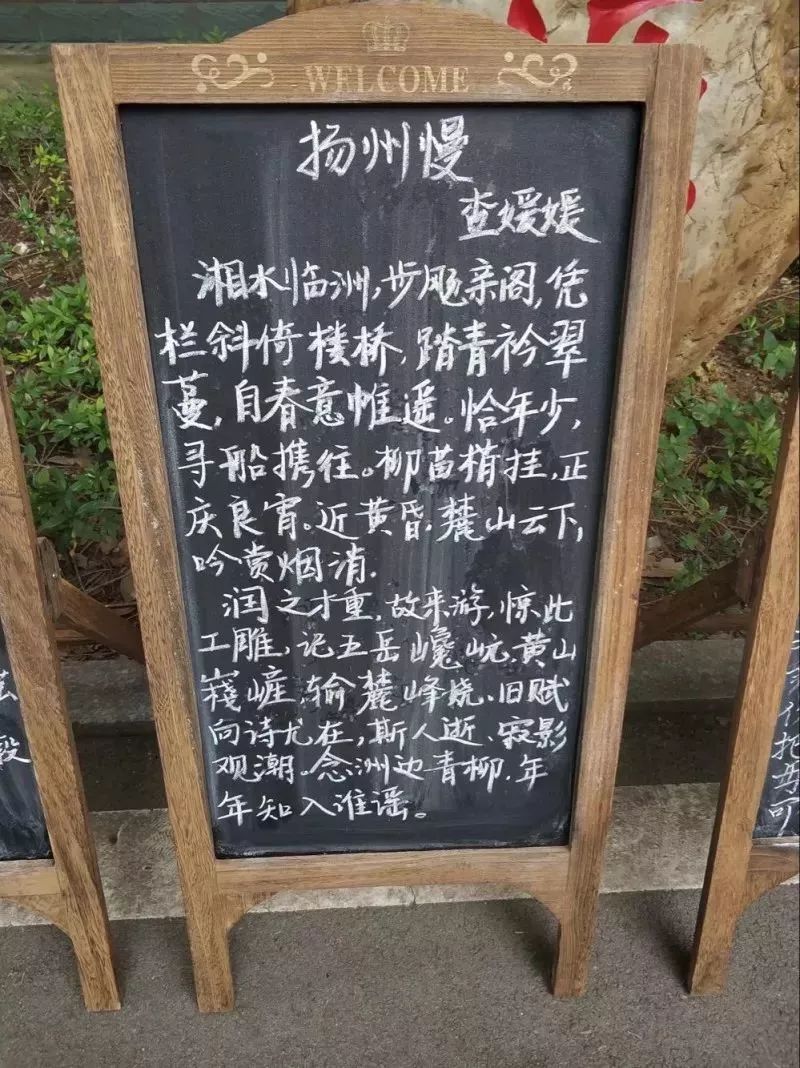 WELCOME
扬州慢
查媛媛
湘水临洲,步飏亲阁,凭
栏斜倚楼桥,踏青衿翠
蔓,自春意惟遥。恰年少,
寻船携往。柳苗梢挂,正
庆良宵。近黄昏,麓山云下,
吟赏烟消.
润之才重,故来游,惊此
工雕,记五岳巉岏,黄山
嵯,输麓峰娆、旧赋
向诗尤在,斯人逝、寂影
观潮。念洲边青柳.年
年知入谁谣。
殿
把
可